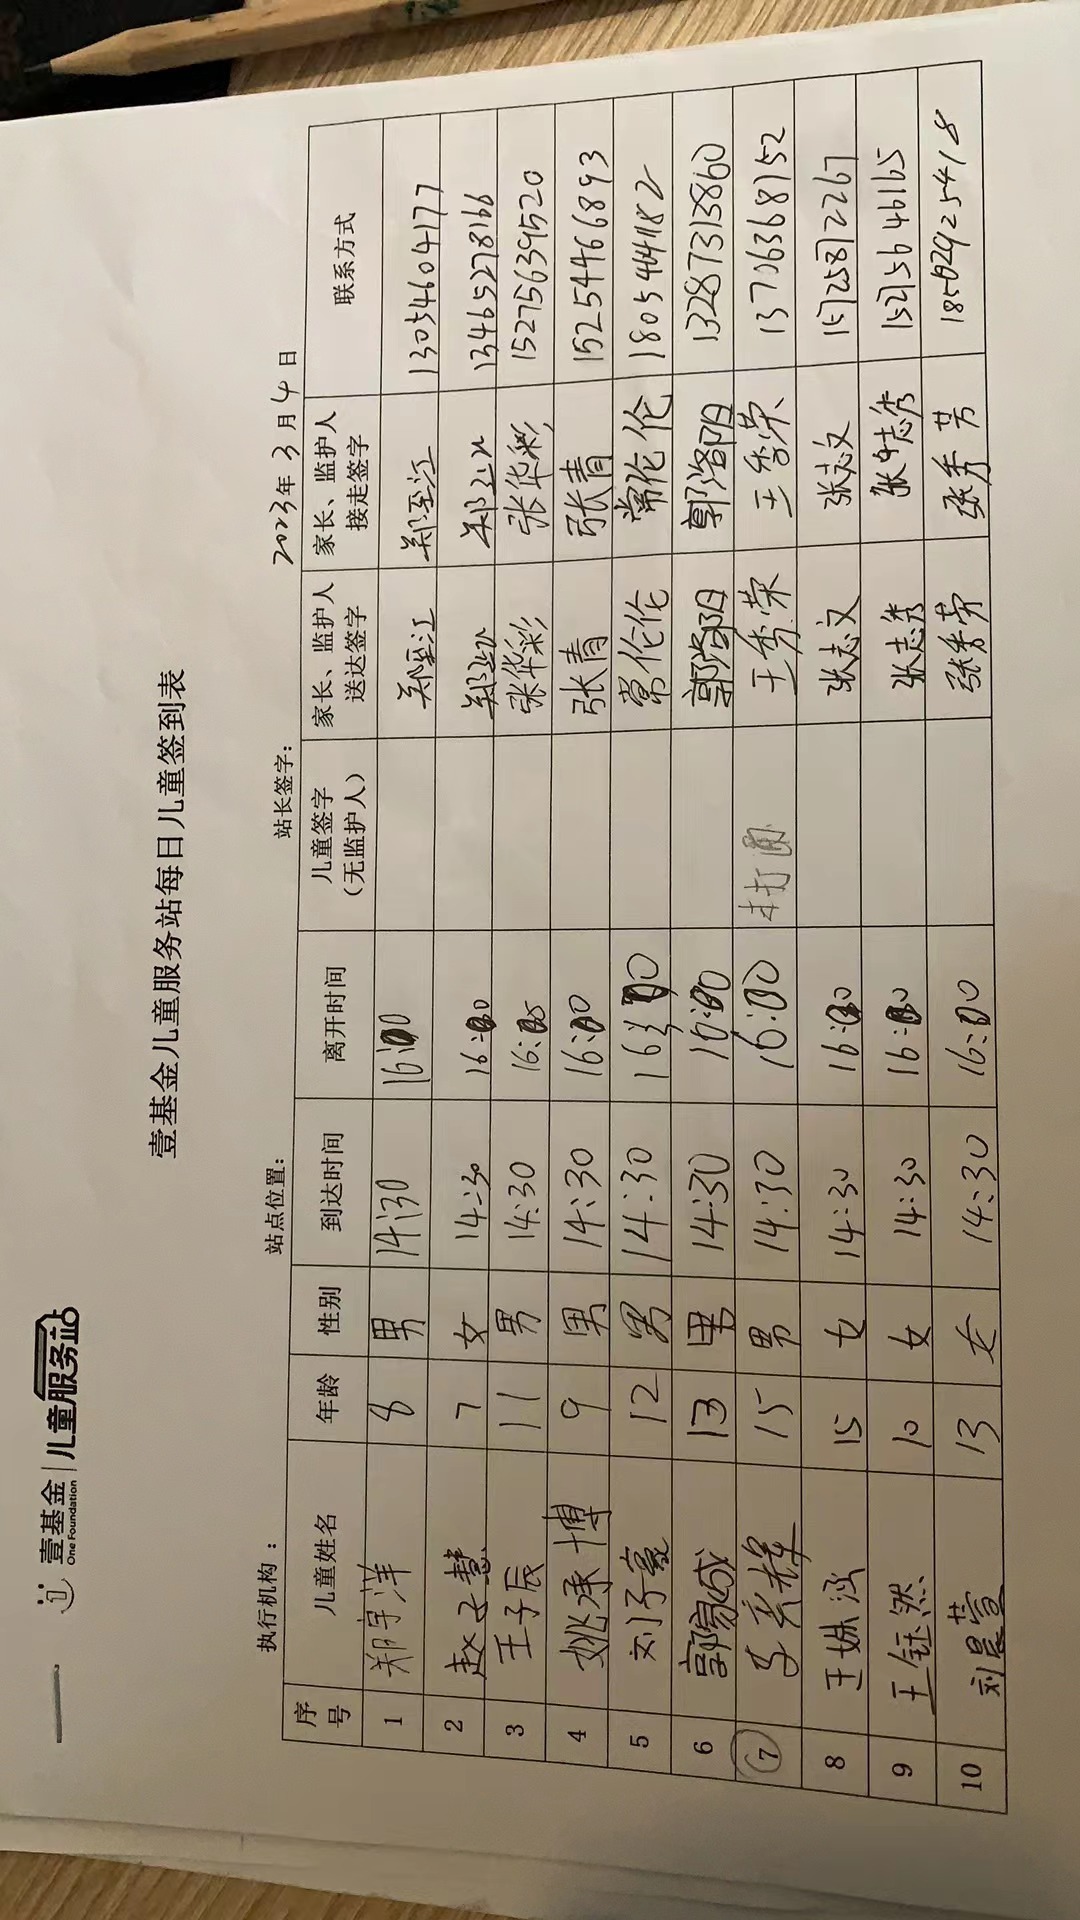 壹基金 儿童服务站
One Foundation
壹基金儿童服务站每日儿童签到表
执行机构： 站点位置： 站长签字： 2023年3月4日
序号 儿童姓名 年龄 性别 到达时间 离开时间 儿童签字（无监护人） 家长、监护人送达签字 家长、监护人接走签字 联系方式
1 郑宇洋 8 男 14:30 16:00 郑至江 郑至江 13054604177
2 赵子慧 7 女 14:30 16:00 13465278166
3 王子辰 11 男 14:30 16:05 张华彩 张华彩 15275639520
4 姚承博 9 男 14:30 16:00 张青 张青 15254466893
5 刘子豪 12 男 14:30 16:00 常伦伦 常伦伦 18054641182
6 郭家成 13 男 14:30 16:00 郭洛阳 郭洛阳 13287313860
7 李奕辉 15 男 14:30 16:00 王秀荣 王秀荣 13706368152
8 王姝涵 15 女 14:30 16:00 张志文 张志文 15725872267
9 王钰然 10 女 14:30 16:00 张志秀 张志秀 15215646165
10 刘晨萱 13 女 14:30 16:00 张秀芳 张秀芳